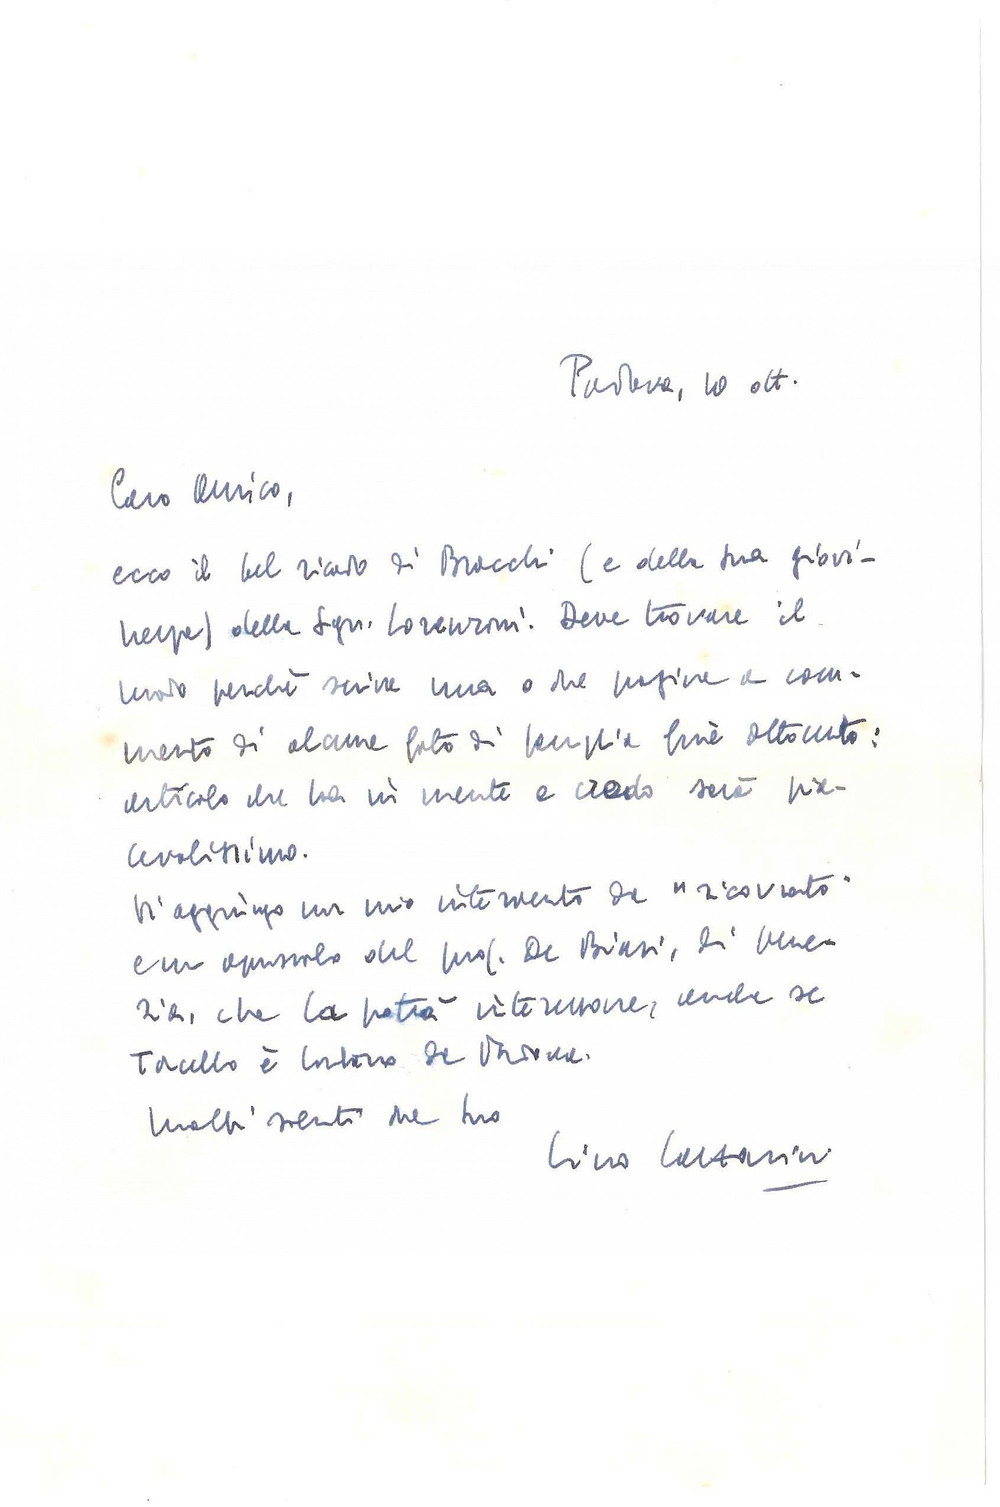 Padova, 10 ott.
Caro Amico,
ecco il bel ricordo di Bracchi (e della sua giovi-
nezza) della Sgn. Lorenzoni. Deve trovare il
modo perchè scriva una o due pagine a com-
mento di alcune foto di famiglia fine ottocento:
articolo che ha in mente e credo sarà pia-
cevolissimo.
Vi aggiungo un mio intervento da "ricovrato"
e un opuscolo del prof. De Biasi, di Vene-
zia, che La potrà interessare, anche se
Torcello è lontano da
Molti saluti dal suo
Lino Lazzarini